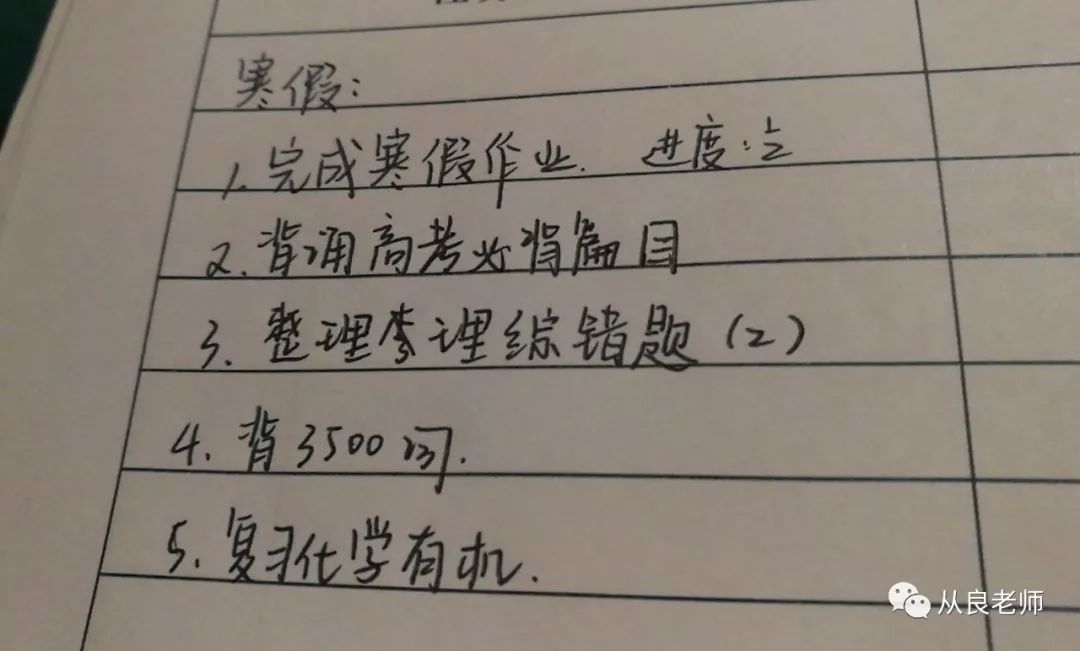 寒假：
1. 完成寒假作业. 进度：½
2. 背诵高考必背篇目
3. 整理理综错题（2）
4. 背3500词.
5. 复习化学有机.
从良老师